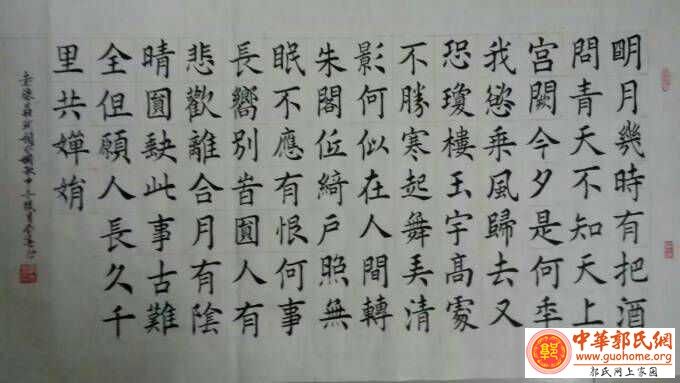 眀月幾時有把酒
問青天不知天上
宮闕今夕是何秊
我慾乘風歸去又
恐瓊樓玉宇高處
不勝寒起舞弄清
影何似在人間轉
朱閣低綺戶照無
眠不應有恨何事
長嚮別旹圓人有
悲歡離合月有陰
晴圓缺此事古難
全但願人長久千
里共嬋娟
中華郭氏網
www.guohome.org
郭氏网上家園